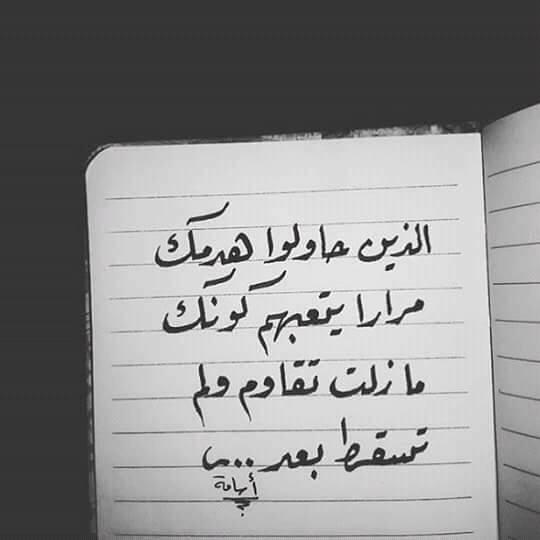 الذين حاولوا هدمك
مرارا يتعبهم كونك
ما زلت تقاوم ولم
تسقط بعد ...